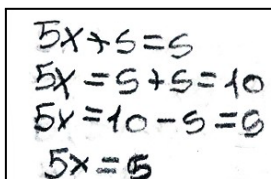 5x+5=5
5x=5+5=10
5x=10-5=5
5x=5